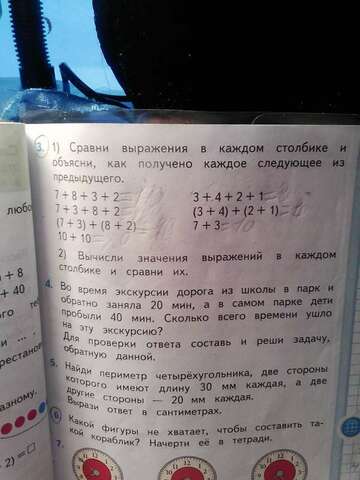 3. 1) Сравни выражения в каждом столбике и
объясни, как получено каждое следующее из
предыдущего.
7+8+3+2 3+4+2+1
7+3+8+2 (3+4)+(2+1)
(7+3)+(8+2) 7+3
10+10
2) Вычисли значения выражений в каждом
столбике и сравни их.
4. Во время экскурсии дорога из школы в парк и
обратно заняла 20 мин, а в самом парке дети
пробыли 40 мин. Сколько всего времени ушло
на эту экскурсию?
Для проверки ответа составь и реши задачу,
обратную данной.
5. Найди периметр четырёхугольника, две стороны
которого имеют длину 30 мм каждая, а две
другие стороны — 20 мм каждая.
Вырази ответ в сантиметрах.
6. Какой фигуры не хватает, чтобы составить та-
кой кораблик? Начерти её в тетради.
7.
любо
+ 8
+ 40
ого
и ... .
рестанов
азному.
2) = □